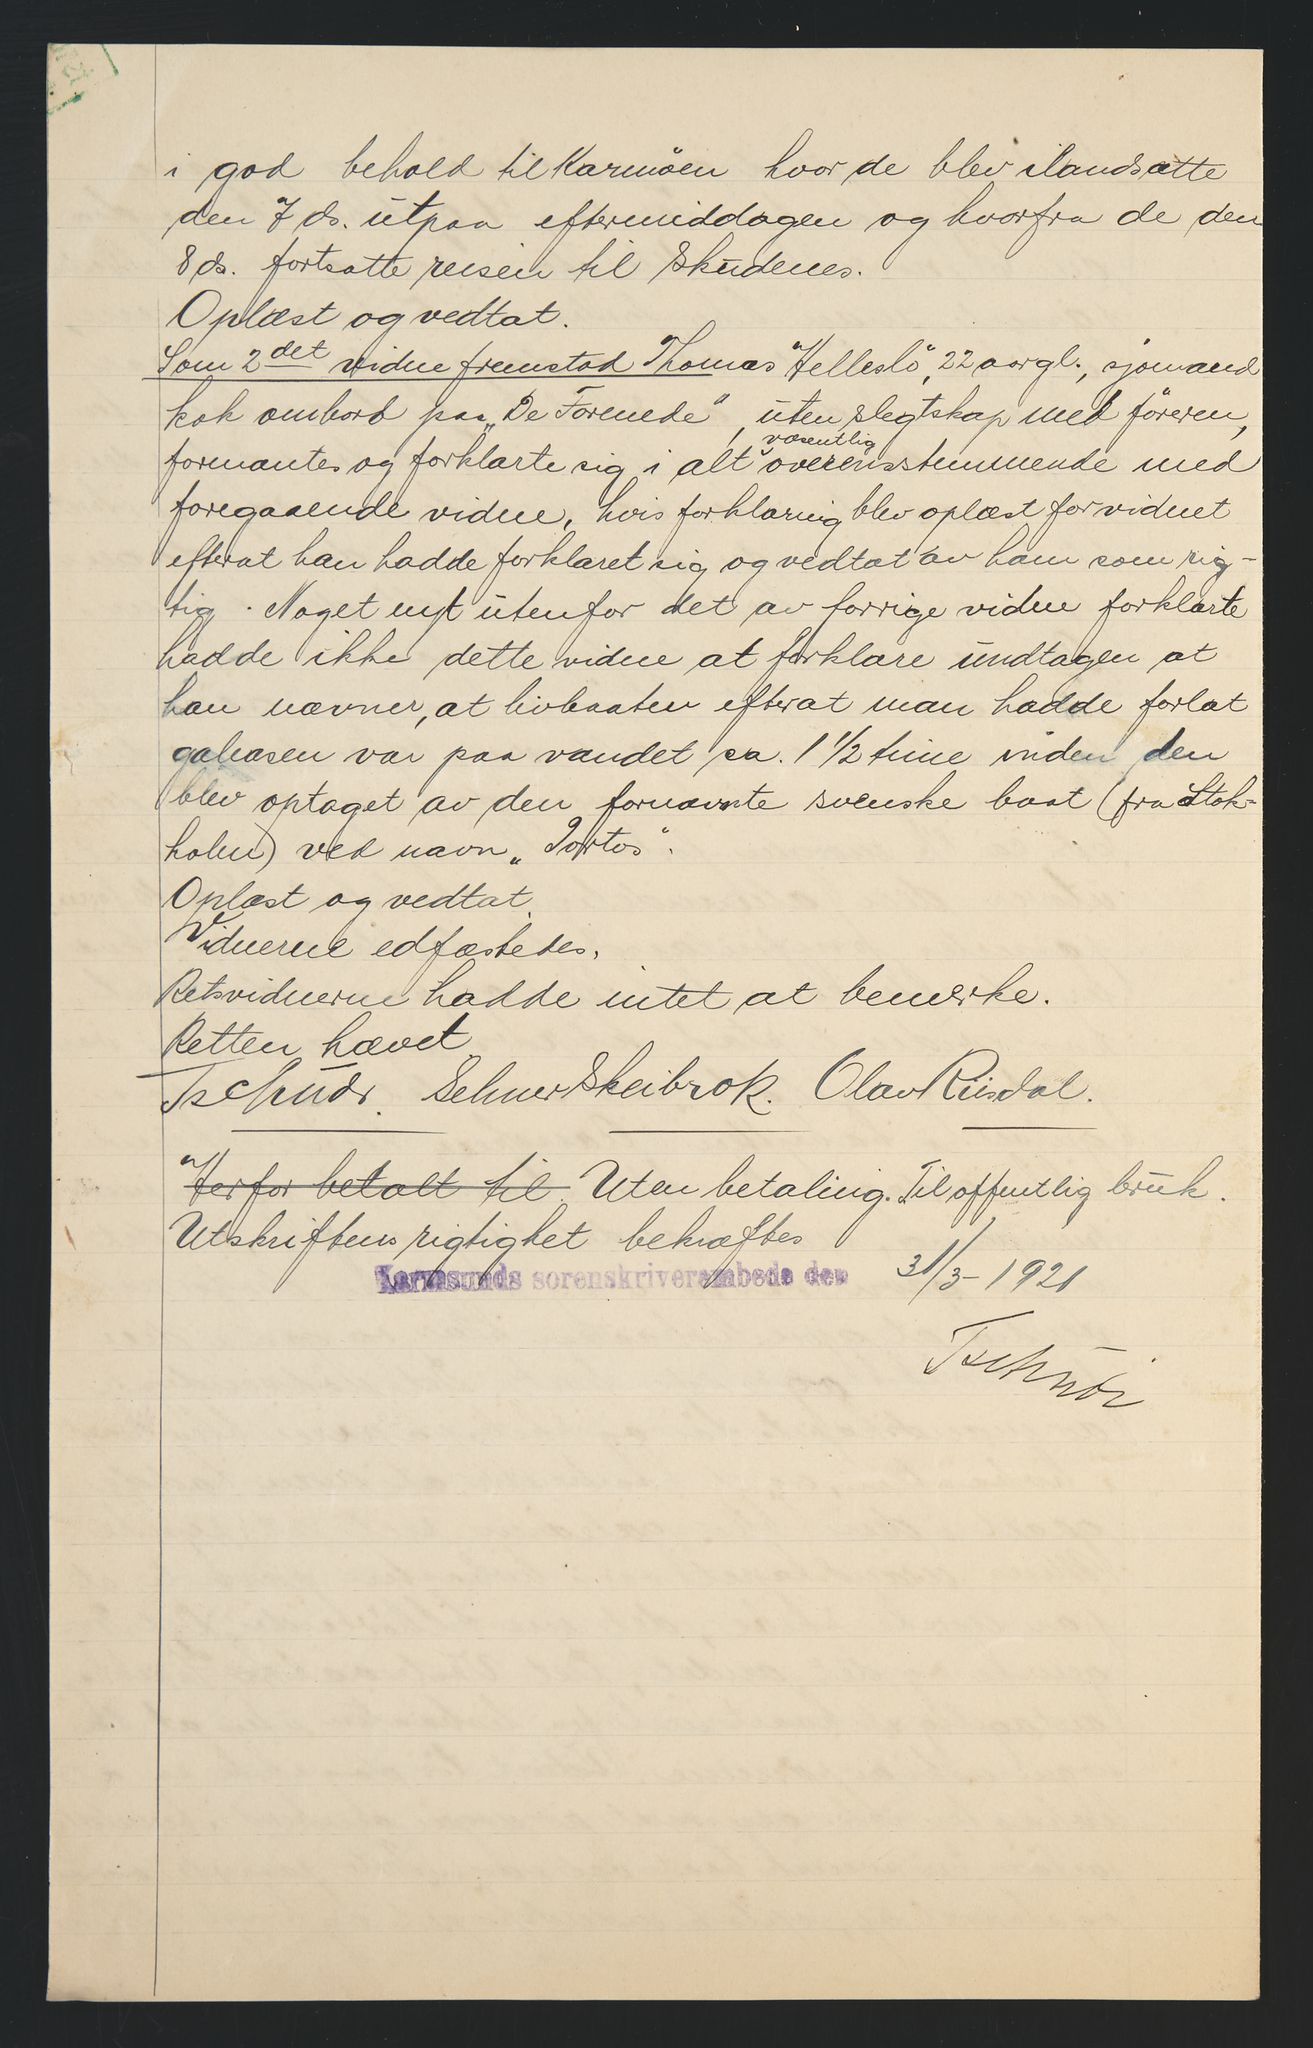 i god behold til Karmöen hvor de blev ilandsatte
den 7 ds. utpaa eftermiddagen og hvorfra de den
8 ds. fortsatte reisen til Skudenes.
Oplæst og vedtat.
Som 2det vidne fremstod Thomas Helleslö, 22 aar gl., sjømand
kok ombord paa "De Forenede", uten slegtskap med föreren,
formantes og forklarte sig i alt væsentlig overensstemmende med
foregaaende vidne, hvis forklaring blev oplæst for vidnet
efterat han hadde forklaret sig og vedtat av ham som rig-
tig. Noget nyt utenfor det av forrige vidne forklarte
hadde ikke dette vidne at forklare undtagen at
han nævner, at livbaaten efterat man hadde forlat
galeasen var paa vandet ca. 1 1/2 time inden den
blev optaget av den fornævnte svenske baat (fra Stok-
holm) ved navn "Portos".
Oplæst og vedtat.
Vidnerne edfæstedes.
Retsvidnerne hadde intet at bemerke.
Retten hævet
Tschudi. Selmer Skeibrok. Olav Riisdal.
Herfor betalt til Uten betaling. Til offentlig bruk.
Utskriftens rigtighet bekræftes
Karmsunds sorenskriverembede den 31/3-1921
Tschudi